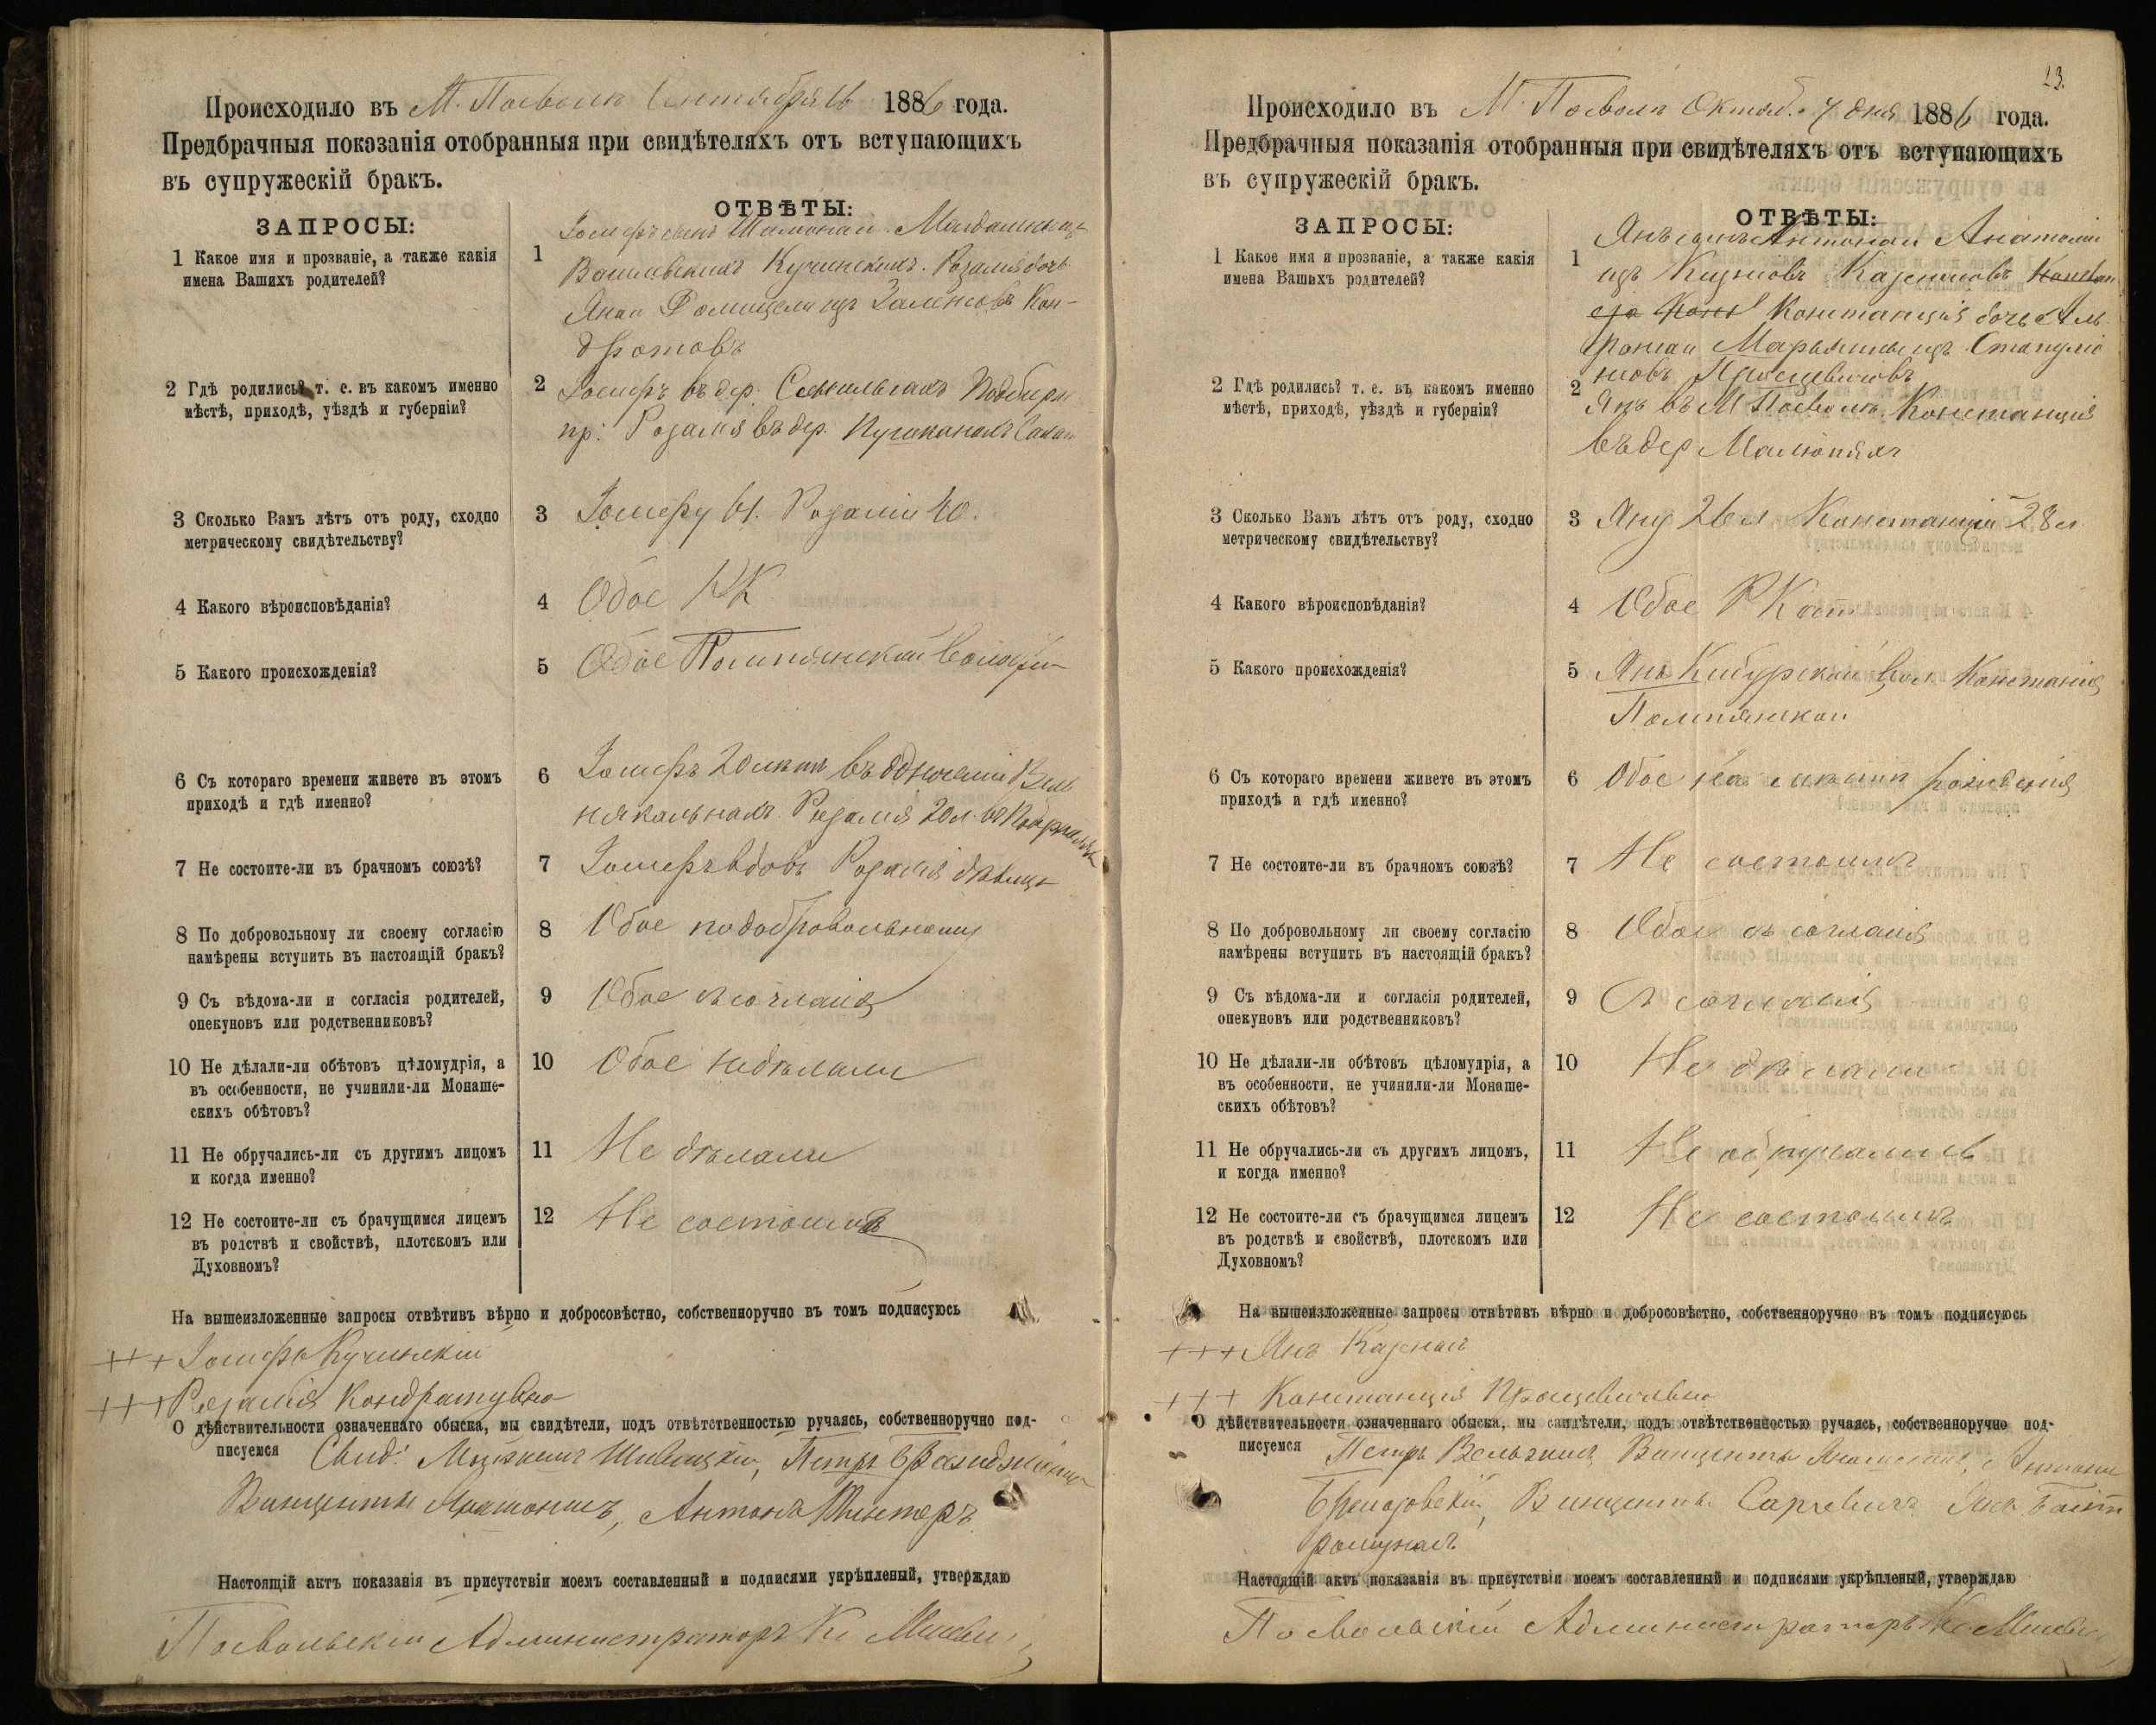 Происходило въ М. Посволе Сентября 16 1886 года.
Предбрачныя показанія отобранныя при свидѣтеляхъ отъ вступающихъ
въ супружескій бракъ.
ЗАПРОСЫ:
ОТВѢТЫ:
1 Какое имя и прозваніе, а также какія
имена Вашихъ родителей?
1
Кучинскихъ. Розалія дочь
Яна и
2 Гдѣ родились? т. е. въ какомъ именно
мѣстѣ, приходѣ, уѣздѣ и губерніи?
2 Іосифъ въ дер.
пр. Розалія въ дер.
3 Сколько Вамъ лѣтъ отъ роду, сходно
метрическому свидѣтельству?
3 Іосифу 61. Розаліи 40.
4 Какого вѣроисповѣданія?
4 Обое РК
5 Какого происхожденія?
5 Обое Помпянской волости
6 Съ котораго времени живете въ этомъ
приходѣ и гдѣ именно?
6 Іосифъ 20 лѣтъ въ
Розалія 20 л.
7 Не состоите-ли въ брачномъ союзѣ?
7 Іосифъ вдовъ Розалія дѣвица
8 По добровольному ли своему согласію
намѣрены вступить въ настоящій бракъ?
8 Обое по добровольному
9 Съ вѣдома-ли и согласія родителей,
опекуновъ или родственниковъ?
9 Обое съ согласія
10 Не дѣлали-ли обѣтовъ цѣломудрія, а
въ особенности, не учинили-ли Монаше-
скихъ обѣтовъ?
10 Обое не дѣлали
11 Не обручались-ли съ другимъ лицомъ
и когда именно?
11 Не дѣлали
12 Не состоите-ли съ брачущимся лицемъ
въ родствѣ и свойствѣ, плотскомъ или
Духовномъ?
12 Не состоимъ
На вышеизложенные запросы отвѣтивъ вѣрно и добросовѣстно, собственноручно въ томъ подписуюсь
+++ Іосифъ Кучинскій
+++ Розалія Кондратувна
О дѣйствительности означеннаго обыска, мы свидѣтели, подъ отвѣтственностью ручаясь, собственноручно под-
писуемся Свид: Петръ
Винценты Антонъ
Настоящій актъ показанія въ присутствіи моемъ составленный и подписями укрѣпленый, утверждаю
Посвольскій Администраторъ Кс
23.
Происходило въ М. Посволе Октяб. 7 дня 1886 года.
Предбрачныя показанія отобранныя при свидѣтеляхъ отъ вступающихъ
въ супружескій бракъ.
ЗАПРОСЫ:
ОТВѢТЫ:
1 Какое имя и прозваніе, а также какія
имена Вашихъ родителей?
1 Янъ сынъ Антона и Анатоліи
изъ
Констанція дочь
Марьянны изъ
2 Гдѣ родились? т. е. въ какомъ именно
мѣстѣ, приходѣ, уѣздѣ и губерніи?
2 Янъ въ М Посволе. Констанція
въ дер Малюпяхъ
3 Сколько Вамъ лѣтъ отъ роду, сходно
метрическому свидѣтельству?
3 Яну 26 л Констанціи 28 л
4 Какого вѣроисповѣданія?
4 Обое Р Кат
5 Какого происхожденія?
5 Янъ Кибурской вол. Констанція
Помпянской
6 Съ котораго времени живете въ этомъ
приходѣ и гдѣ именно?
6 Обое рожденія
7 Не состоите-ли въ брачномъ союзѣ?
7 Не состоимъ
8 По добровольному ли своему согласію
намѣрены вступить въ настоящій бракъ?
8 Обое съ согласія
9 Съ вѣдома-ли и согласія родителей,
опекуновъ или родственниковъ?
9 Съ согласія
10 Не дѣлали-ли обѣтовъ цѣломудрія, а
въ особенности, не учинили-ли Монаше-
скихъ обѣтовъ?
10 Не дѣлали
11 Не обручались-ли съ другимъ лицомъ,
и когда именно?
11 Не обручались
12 Не состоите-ли съ брачущимся лицемъ
въ родствѣ и свойствѣ, плотскомъ или
Духовномъ?
12 Не состоимъ
На вышеизложенные запросы отвѣтивъ вѣрно и добросовѣстно, собственноручно въ томъ подписуюсь
+++ Янъ
+++ Констанція
О дѣйствительности означеннаго обыска, мы свидѣтели, подъ отвѣтственностью ручаясь, собственноручно под-
писуемся Петръ Винценты
Винценты
Настоящій актъ показанія въ присутствіи моемъ составленный и подписями укрѣпленый, утверждаю
Посвольскій Администраторъ Кс